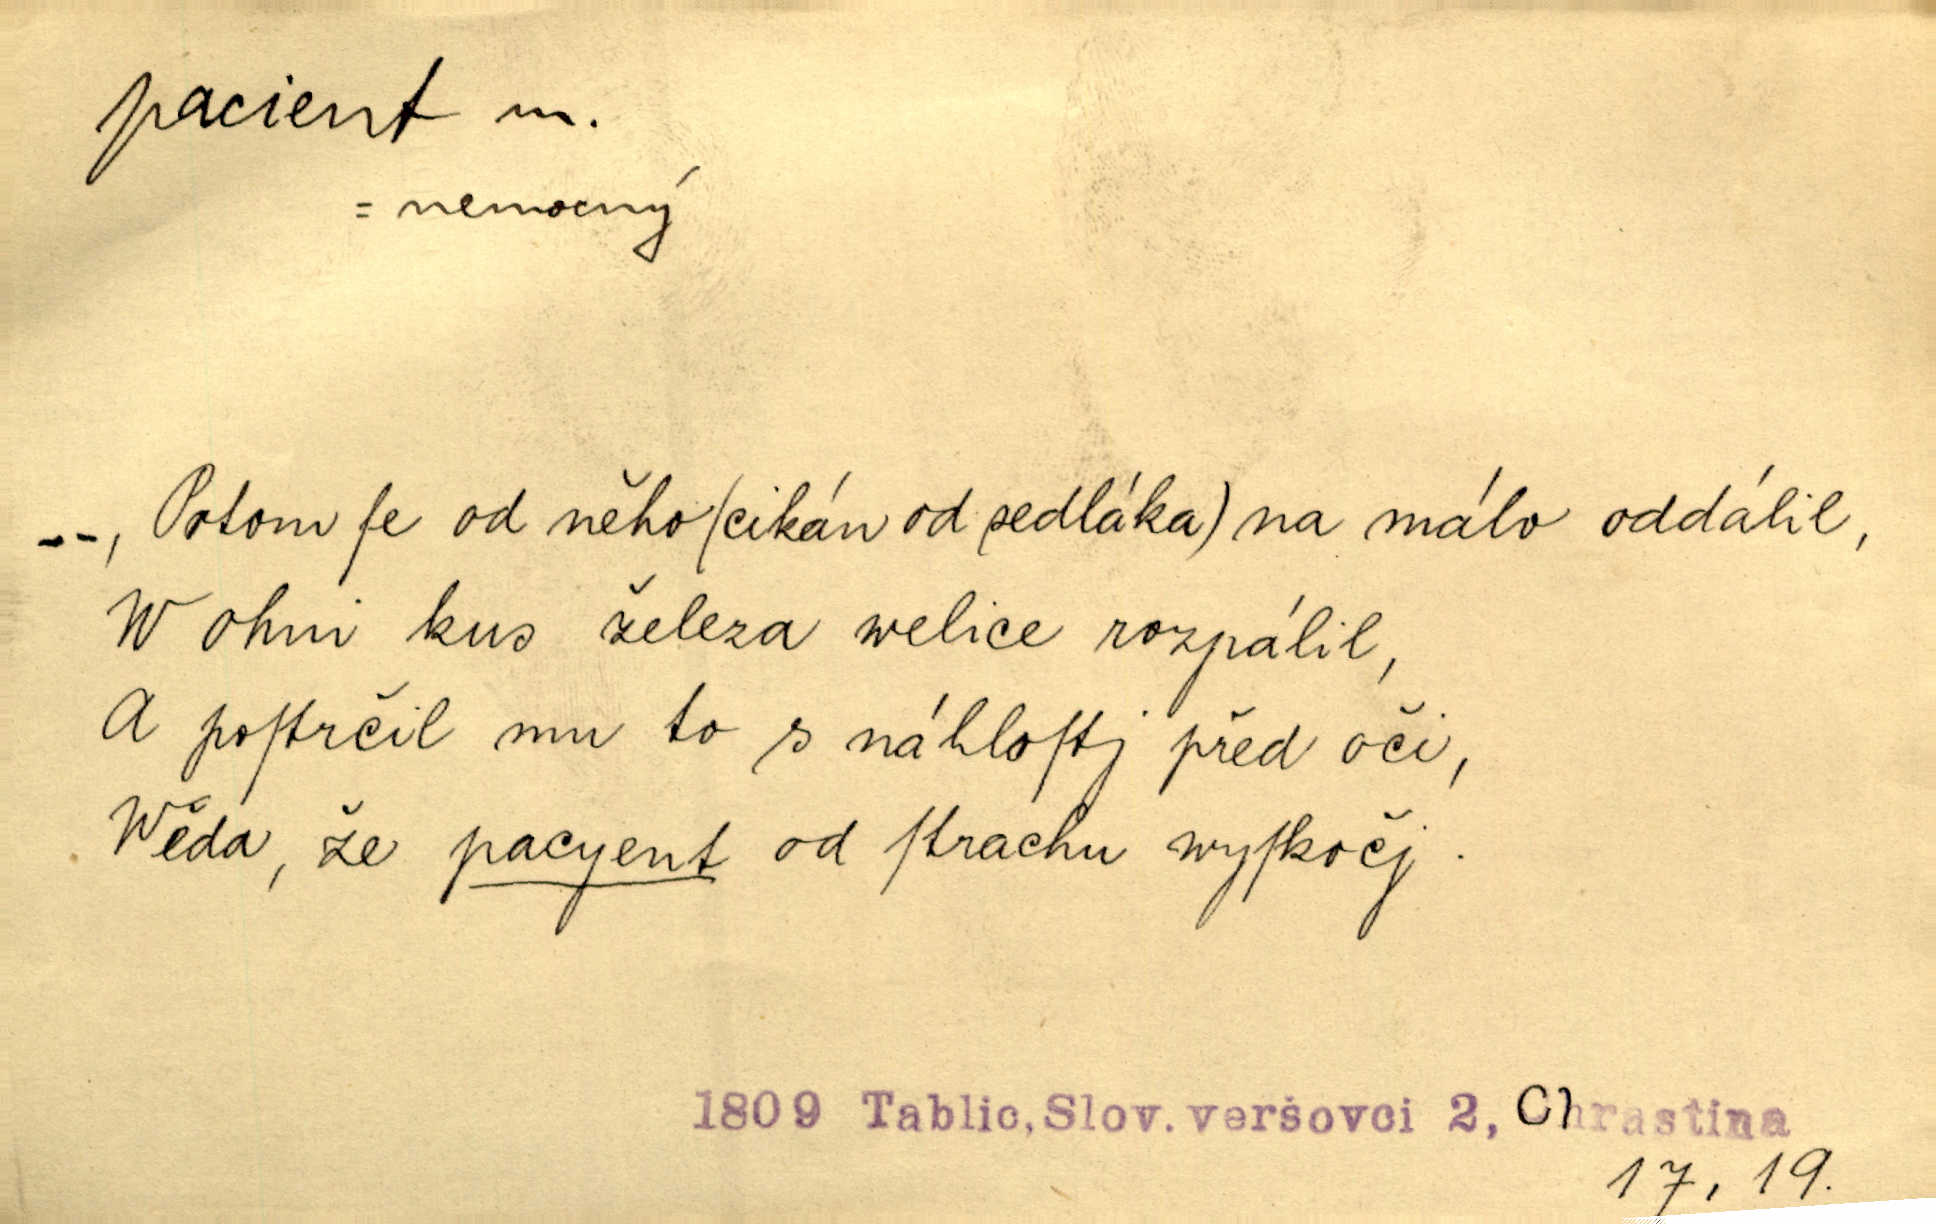 pacient m.
= nemocný
--, Potom ſe od něho (cikán od sedláka) na málo oddálil,
W ohni kus železa welice rozpálil,
A poſtrčil mu to s náhloſtj před oči,
Wěda, že pacyent od ſtrachu wyſkočj.
1809 Tablic, Slov. veršovci 2, Chrastina
17, 19.